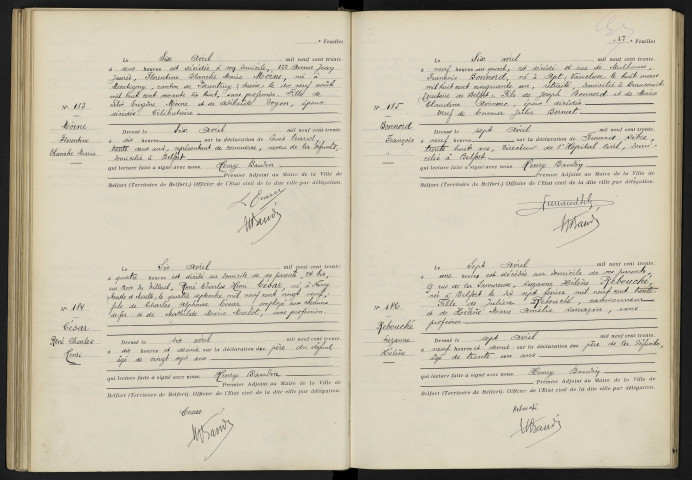 Feuillet
Le Six Avril mil neuf cent trente.
à heures est décédée à son domicile, Avenue Jean
Jaurès, Florentine Blanche Marie Moine, née à
canton de Porrentruy (Suisse) le dix neuf août
mil huit cent sans profession, fille de
Moine et de
Célibataire
N° 183
Moine
Florentine
Blanche Marie
Dressé le six avril mil neuf cent trente.
à dix heures sur la déclaration de Louis
trente ans, représentant de commerce, neveu de la défunte,
domicilié à Belfort
qui lecture faite a signé avec nous Henry Baudin
Premier Adjoint au Maire de la Ville de
Belfort (Territoire de Belfort), Officier de l'Etat civil de la dite ville par délégation.
Le Six Avril mil neuf cent trente.
à quatre heures est décédé au domicile de ses parents, 24 bis,
rue René Charles Henri César, né à
le quatre septembre mil neuf cent vingt neuf,
fils de Charles Alphonse César employé aux chemins
de fer et de Mathilde Marie sans profession.
N° 184
César
René Charles
Henri
Dressé le six avril mil neuf cent trente.
à dix heures et demie sur la déclaration des père du défunt,
âgé de vingt sept ans
qui lecture faite a signé avec nous Henry Baudin
Premier Adjoint au Maire de la Ville de
Belfort (Territoire de Belfort), Officier de l'Etat civil de la dite ville par délégation.
César
47 Feuillet
Le Six Avril mil neuf cent trente.
à neuf heures un quart, est décédé rue de Mulhouse,
François Bonnord, né à Apt, Vaucluse le huit mars
mil huit cent cinquante un, retraité, domicilié à Beaucourt
Territoire de Belfort, fils de Joseph Bonnord et de Marie
Claudine époux décédés
Veuf de Emma Julie Bonnet
N° 185
Bonnord
François
Dressé le sept avril mil neuf cent trente.
à neuf heures sur la déclaration de Fernand
trente huit ans, Directeur de l'Hôpital Civil, domi-
cilié à Belfort
qui lecture faite a signé avec nous Henry Baudin
Premier Adjoint au Maire de la Ville de
Belfort (Territoire de Belfort), Officier de l'Etat civil de la dite ville par délégation.
Le Sept Avril mil neuf cent trente.
à une heures est décédée au domicile de ses parents,
9 rue de la Savoureuse, Suzanne Hélène Rebouché,
née à Belfort le dix sept février mil neuf cent trente
Fille de Julien Rebouché,
et de Hélène Marie Amélie Sarazin, sans
profession
N° 186
Rebouché
Suzanne
Hélène
Dressé le sept avril mil neuf cent trente.
à neuf heures et demie sur la déclaration des père de la défunte,
âgé de trente un ans
qui lecture faite a signé avec nous Henry Baudin
Premier Adjoint au Maire de la Ville de
Belfort (Territoire de Belfort), Officier de l'Etat civil de la dite ville par délégation.